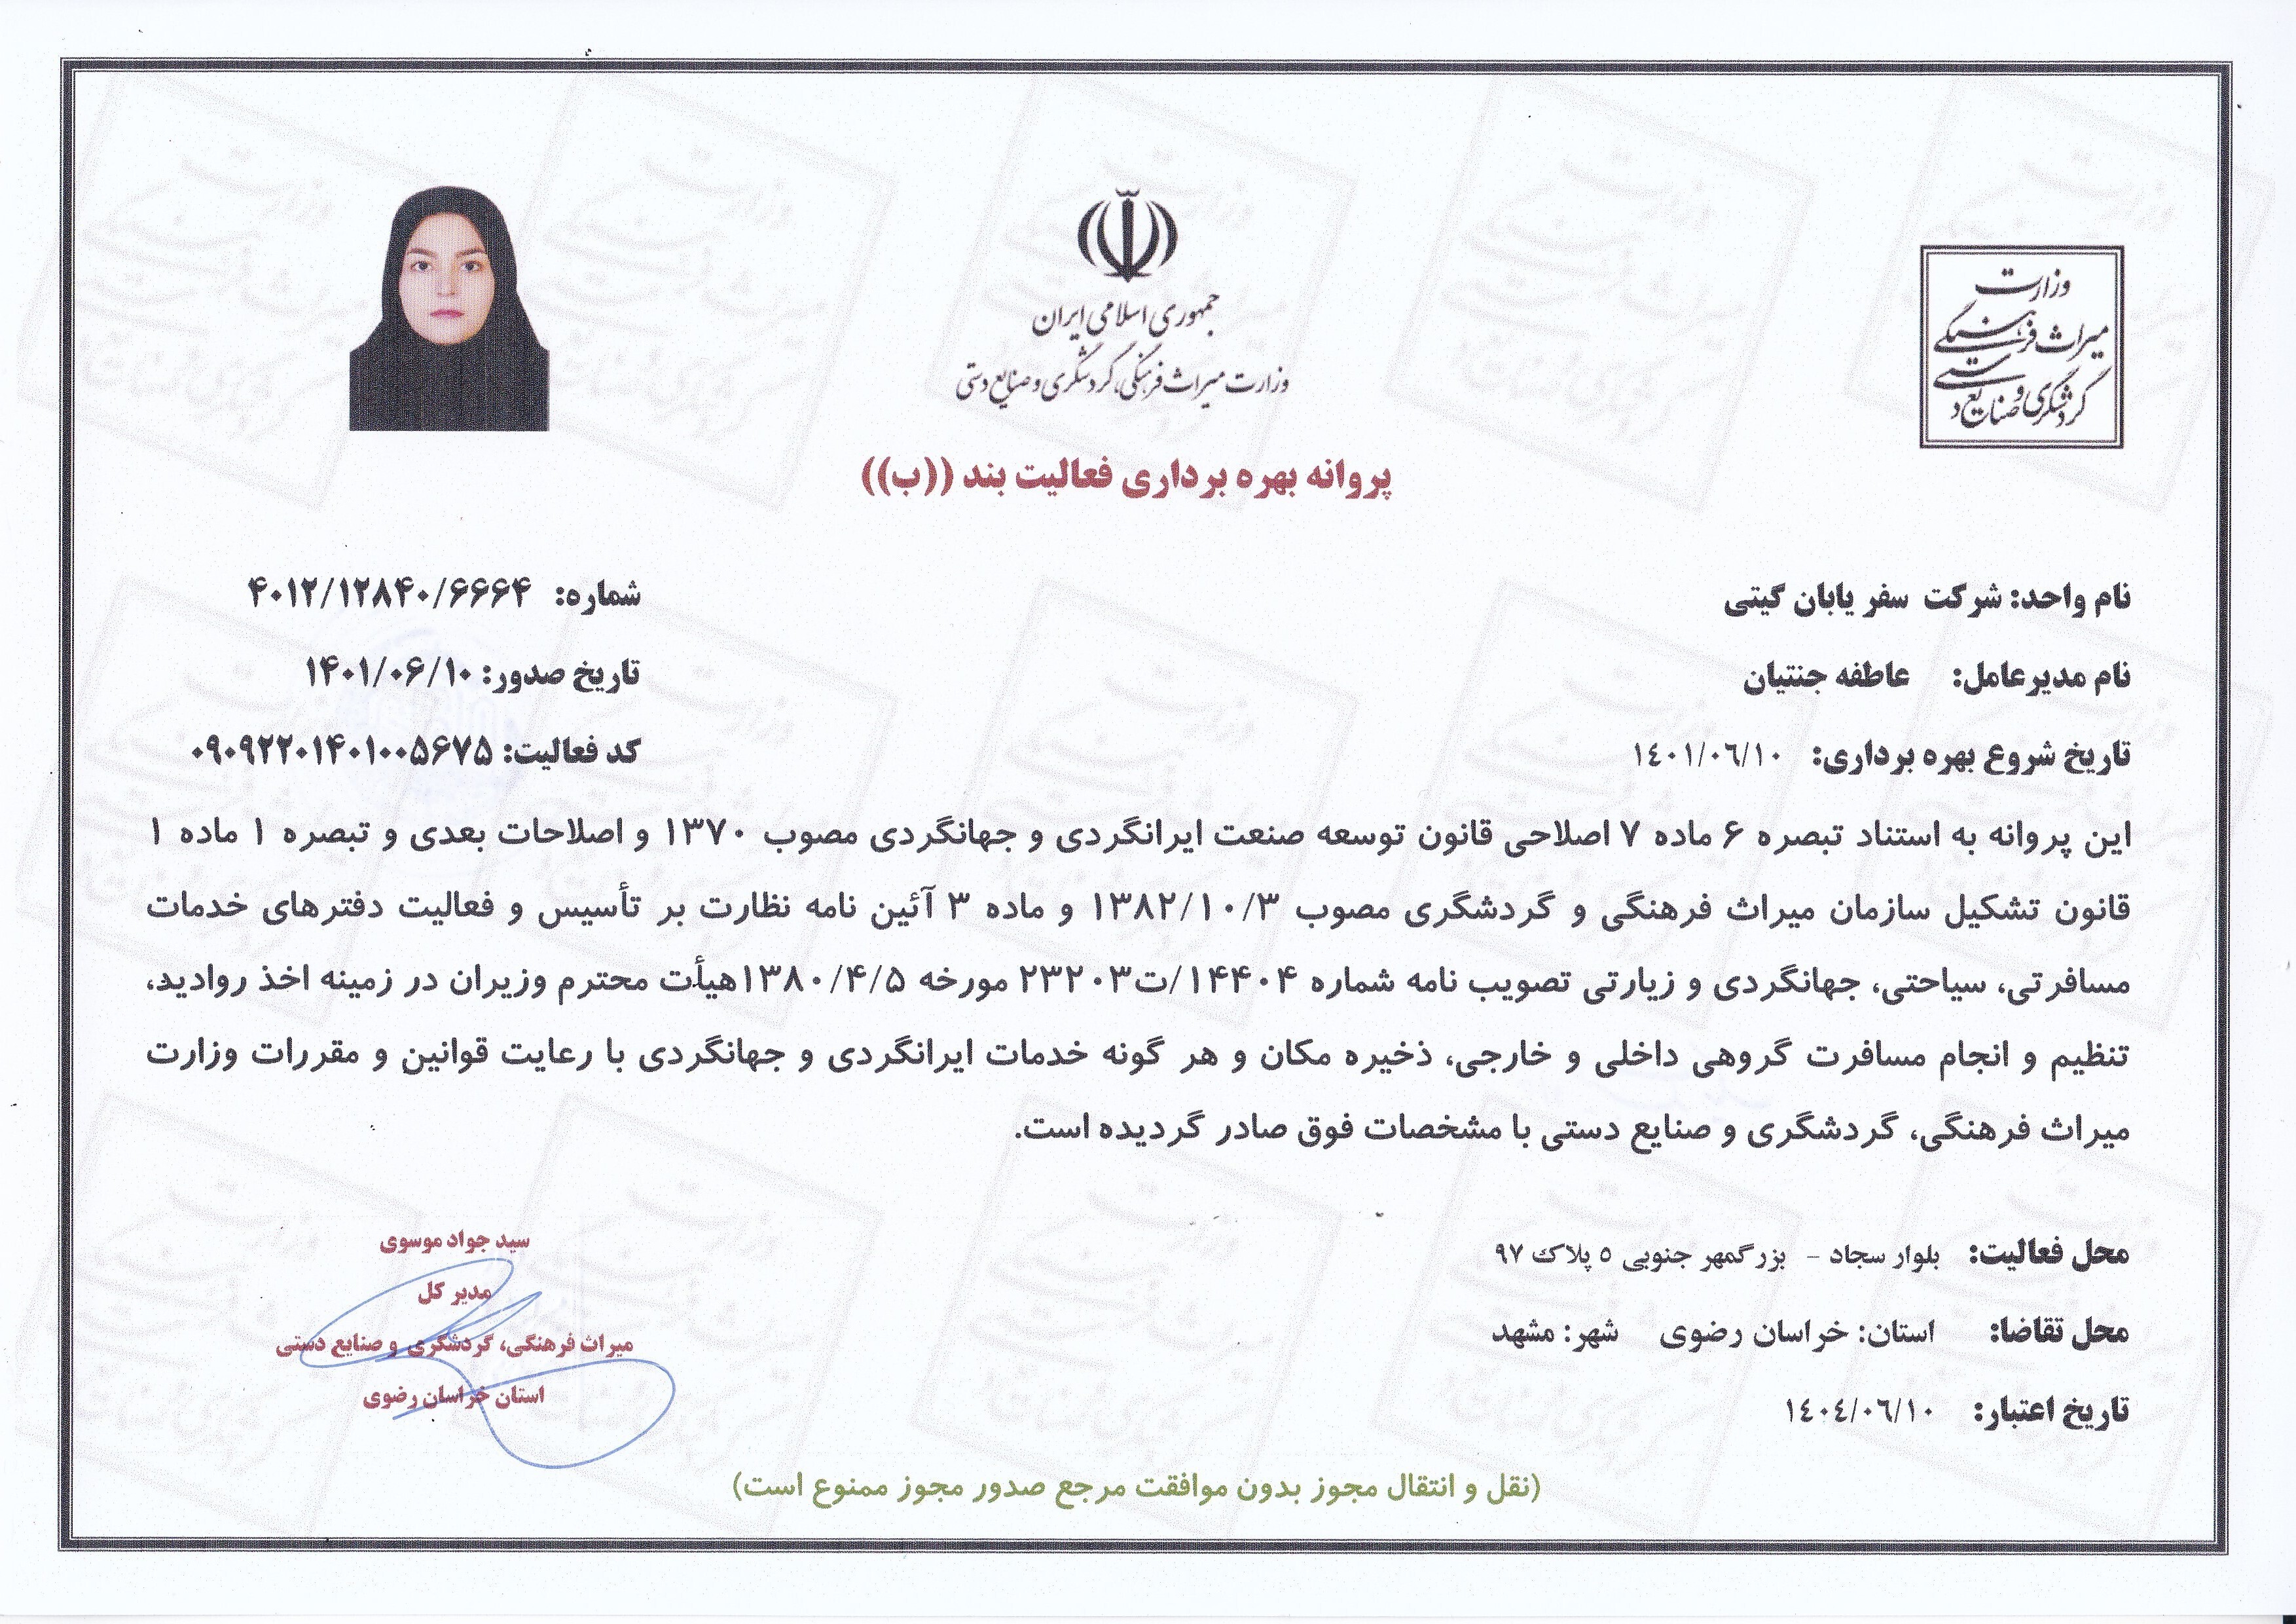 جمهوری اسلامی ایران
وزارت میراث فرهنگی، گردشگری و صنایع دستی
وزارت
میراث فرهنگی
گردشگری و صنایع دستی
پروانه بهره برداری فعالیت بند ((ب))
نام واحد: شرکت سفر یابان گیتی
شماره: ۴۰۱۲/۱۲۸۴۰/۶۶۶۴
نام مدیرعامل: عاطفه جنتیان
تاریخ صدور: ۱۴۰۱/۰۶/۱۰
تاریخ شروع بهره برداری: ١٤٠١/٠٦/١٠
کد فعالیت: ۰۹۰۹۲۲۰۱۴۰۱۰۰۵۶۷۵
این پروانه به استناد تبصره ۶ ماده ۷ اصلاحی قانون توسعه صنعت ایرانگردی و جهانگردی مصوب ۱۳۷۰ و اصلاحات بعدی و تبصره ۱ ماده ۱
قانون تشکیل سازمان میراث فرهنگی و گردشگری مصوب ۱۳۸۲/۱۰/۳ و ماده ۳ آئین نامه نظارت بر تأسیس و فعالیت دفترهای خدمات
مسافرتی، سیاحتی، جهانگردی و زیارتی تصویب نامه شماره ۱۴۴۰۴/ت۲۳۲۰۳ مورخه ۱۳۸۰/۴/۵هیأت محترم وزیران در زمینه اخذ روادید،
تنظیم و انجام مسافرت گروهی داخلی و خارجی، ذخیره مکان و هر گونه خدمات ایرانگردی و جهانگردی با رعایت قوانین و مقررات وزارت
میراث فرهنگی، گردشگری و صنایع دستی با مشخصات فوق صادر گردیده است.
محل فعالیت: بلوار سجاد - بزرگمهر جنوبی ٥ پلاک ٩٧
محل تقاضا: استان: خراسان رضوی شهر: مشهد
تاریخ اعتبار: ١٤٠٤/٠٦/١٠
سید جواد موسوی
مدیر کل
میراث فرهنگی، گردشگری و صنایع دستی
استان خراسان رضوی
(نقل و انتقال مجوز بدون موافقت مرجع صدور مجوز ممنوع است)